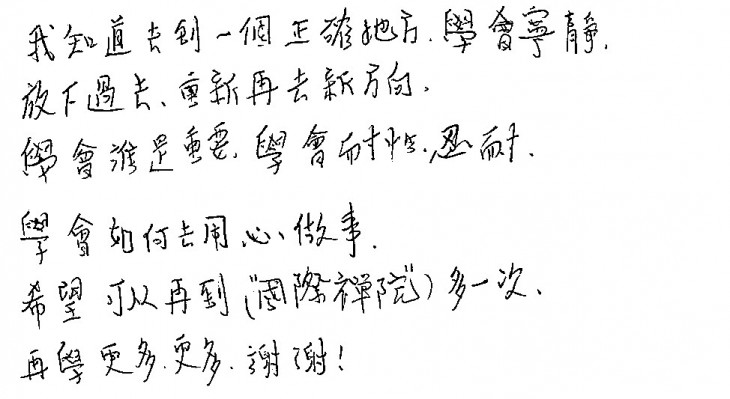 我知道去到一個正確地方.學會寧靜.
放下過去、重新再去新方向.
學會誰是重要.學會耐性.忍耐.
學會如何去用心做事.
希望可以再到("國際禪院")多一次、
再學更多.更多.謝謝!